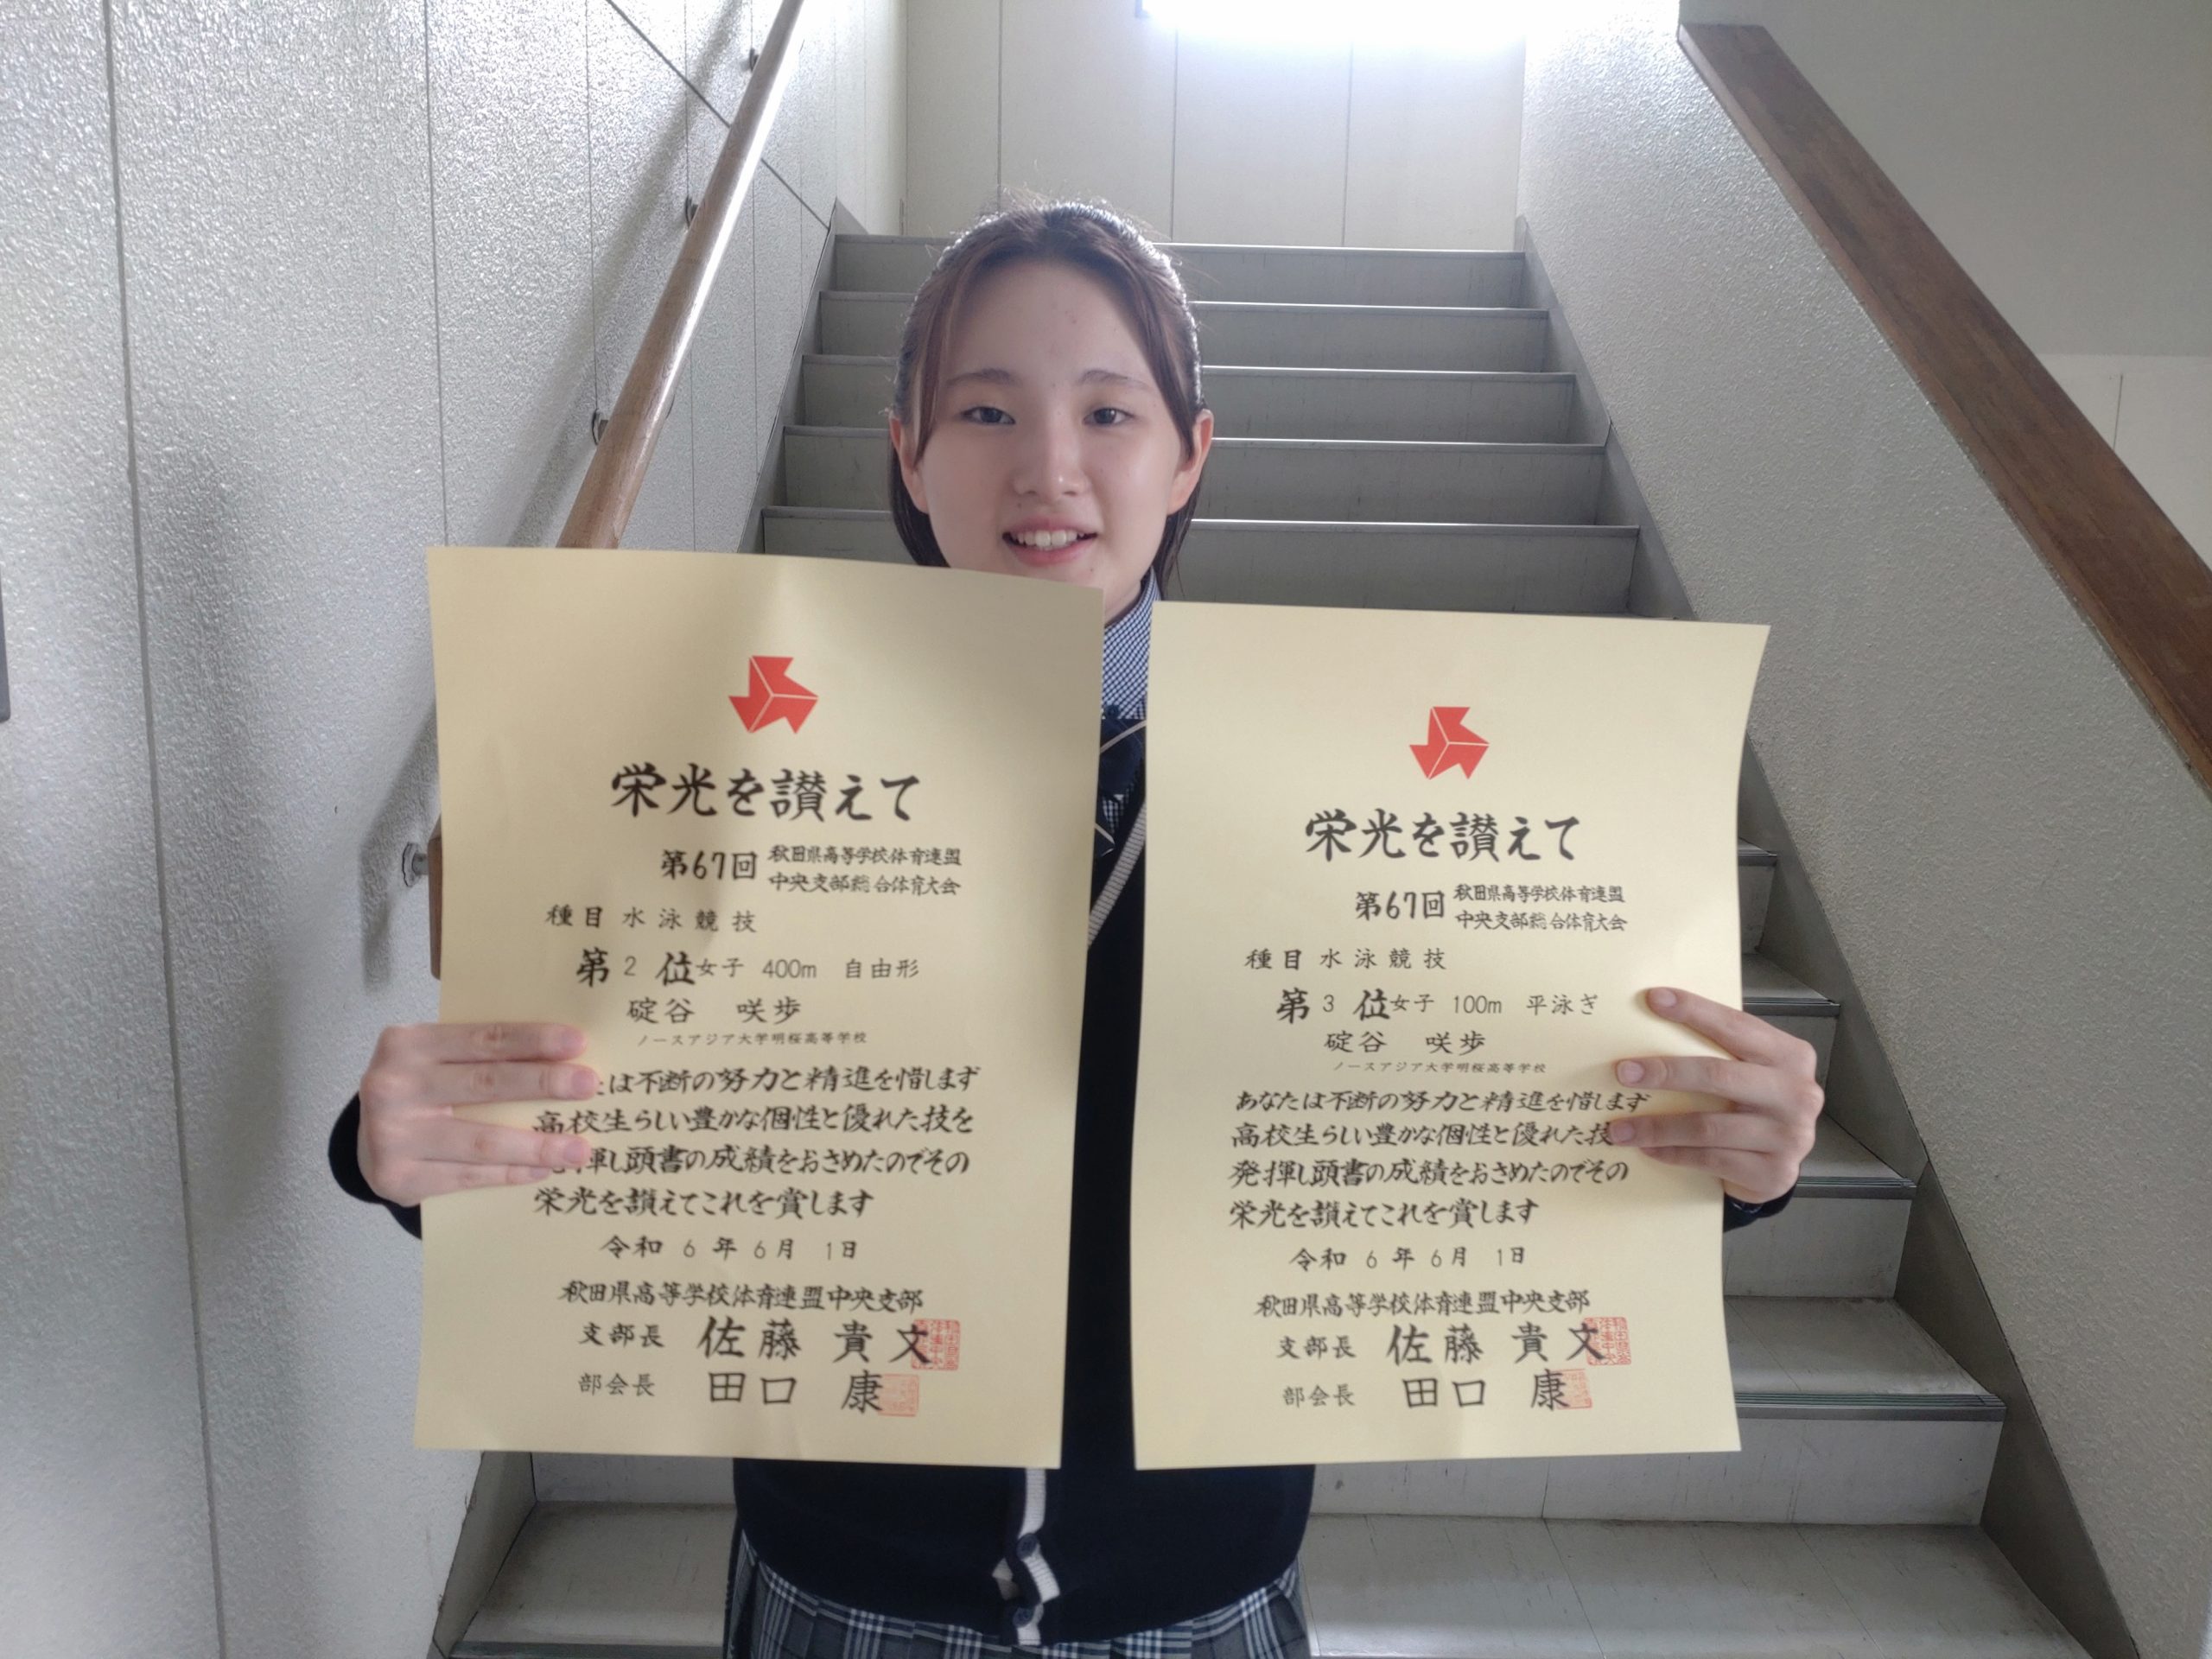 栄光を讃えて
第67回 秋田県高等学校体育連盟
中央支部総合体育大会
種目 水泳競技
第2位 女子 400m 自由形
碇谷 咲歩
ノースアジア大学明桜高等学校
たは不断の努力と精進を惜しまず
高校生らしい豊かな個性と優れた技を
発揮し頭書の成績をおさめたのでその
栄光を讃えてこれを賞します
令和6年6月1日
秋田県高等学校体育連盟中央支部
支部長 佐藤 貴文
部会長 田口 康
栄光を讃えて
第67回 秋田県高等学校体育連盟
中央支部総合体育大会
種目 水泳競技
第3位 女子 100m 平泳ぎ
碇谷 咲歩
ノースアジア大学明桜高等学校
あなたは不断の努力と精進を惜しまず
高校生らしい豊かな個性と優れた技
発揮し頭書の成績をおさめたのでその
栄光を讃えてこれを賞します
令和6年6月1日
秋田県高等学校体育連盟中央支部
支部長 佐藤 貴文
部会長 田口 康